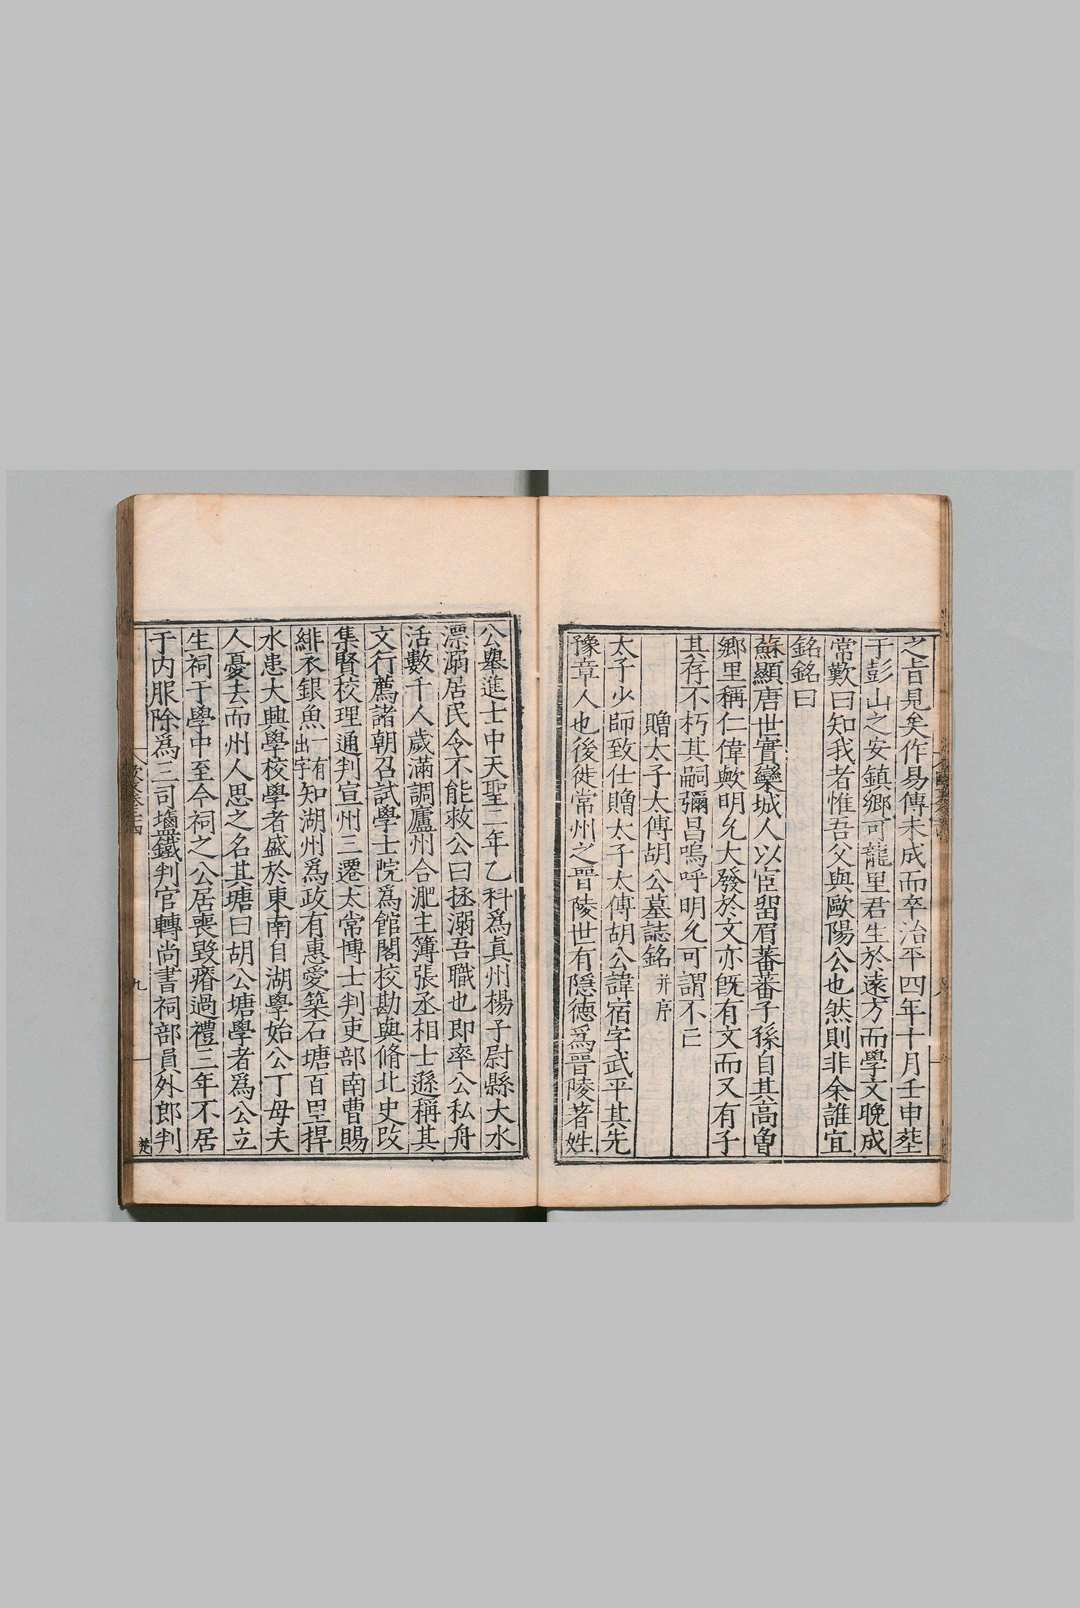 之旨見矣作易傳未成而卒治平四年十月壬申葬
于彭山之安鎮鄉可龍里君生於遠方而學文晚成
常歎曰知我者惟吾父與歐陽公也然則非余誰宜
銘銘曰
蘇顯唐世實欒城人以宦留眉蕃蕃子孫自其高曾
鄉里稱仁偉歟明允大發於文亦旣有文而又有子
其存不朽其嗣彌昌嗚呼明允可謂不亡
贈太子太傅胡公墓誌銘 并序
太子少師致仕贈太子太傅胡公諱宿字武平其先
豫章人也後徙常州之晉陵世有隱德爲晉陵著姓
公舉進士中天聖二年乙科爲眞州楊子尉縣大水
漂溺居民令不能救公曰拯溺吾職也即率公私舟
活數千人歲滿調廬州合肥主簿張丞相士遜稱其
文行薦諸朝召試學士院爲館閣校勘與脩北史改
集賢校理通判宣州三遷太常博士判吏部南曹賜
緋衣銀魚一有出字知湖州爲政有惠愛築石塘百里捍
水患大興學校學者盛於東南自湖學始公丁母夫
人憂去而州人思之名其塘曰胡公塘學者爲公立
生祠于學中至今祠之公居喪毀瘠過禮三年不居
于内服除爲三司鹽鐵判官轉尚書祠部員外郎判
九